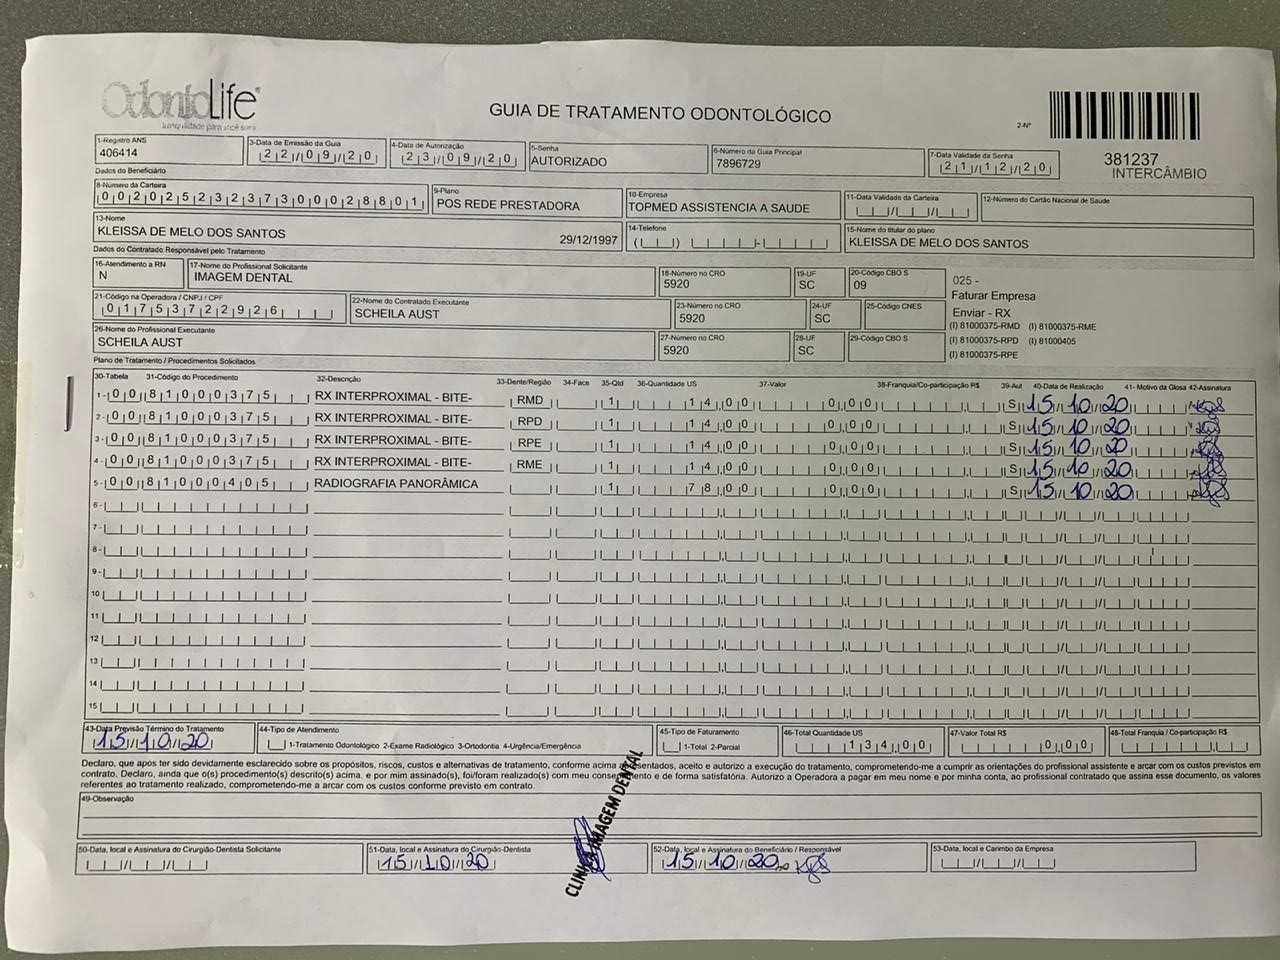 OdontoLife
tranquilidade para você sorrir
GUIA DE TRATAMENTO ODONTOLÓGICO
2-Nº
381237
INTERCÂMBIO
1-Registro ANS
406414
3-Data de Emissão da Guia
22/09/20
4-Data de Autorização
23/09/20
5-Senha
AUTORIZADO
6-Número da Guia Principal
7896729
7-Data Validade da Senha
21/12/20
Dados do Beneficiário
8-Número da Carteira
00202523237300028801
9-Plano
POS REDE PRESTADORA
10-Empresa
TOPMED ASSISTENCIA A SAUDE
11-Data Validade da Carteira
12-Número do Cartão Nacional de Saúde
13-Nome
KLEISSA DE MELO DOS SANTOS 29/12/1997
14-Telefone
15-Nome do titular do plano
KLEISSA DE MELO DOS SANTOS
Dados do Contratado Responsável pelo Tratamento
16-Atendimento a RN
N
17-Nome do Profissional Solicitante
IMAGEM DENTAL
18-Número no CRO
5920
19-UF
SC
20-Código CBO S
09
025 -
Faturar Empresa
Enviar - RX
(I) 81000375-RMD (I) 81000375-RME
(I) 81000375-RPD (I) 81000405
(I) 81000375-RPE
21-Código na Operadora / CNPJ / CPF
01753722926
22-Nome do Contratado Executante
SCHEILA AUST
23-Número no CRO
5920
24-UF
SC
25-Código CNES
26-Nome do Profissional Executante
SCHEILA AUST
27-Número no CRO
5920
28-UF
SC
29-Código CBO S
Plano de Tratamento / Procedimentos Solicitados
30-Tabela 31-Código do Procedimento 32-Descrição 33-Dente/Região 34-Face 35-Qtd 36-Quantidade US 37-Valor 38-Franquia/Co-participação R$ 39-Aut 40-Data de Realização 41- Motivo da Glosa 42-Assinatura
1- 00 81000375 RX INTERPROXIMAL - BITE- RMD 1 14,00 0,00 S 15/10/20
2- 00 81000375 RX INTERPROXIMAL - BITE- RPD 1 14,00 0,00 S 15/10/20
3- 00 81000375 RX INTERPROXIMAL - BITE- RPE 1 14,00 0,00 S 15/10/20
4- 00 81000375 RX INTERPROXIMAL - BITE- RME 1 14,00 0,00 S 15/10/20
5- 00 81000405 RADIOGRAFIA PANORÂMICA 1 78,00 0,00 S 15/10/20
6-
7-
8-
9-
10
11
12
13
14
15
43-Data Previsão Término do Tratamento
15/10/20
44-Tipo de Atendimento
1-Tratamento Odontológico 2-Exame Radiológico 3-Ortodontia 4-Urgência/Emergência
45-Tipo de Faturamento
1-Total 2-Parcial
46-Total Quantidade US
134,00
47-Valor Total R$
0,00
48-Total Franquia / Co-participação R$
Declaro, que após ter sido devidamente esclarecido sobre os propósitos, riscos, custos e alternativas de tratamento, conforme acima apresentados, aceito e autorizo a execução do tratamento, comprometendo-me a cumprir as orientações do profissional assistente e arcar com os custos previstos em
contrato. Declaro, ainda que o(s) procedimento(s) descrito(s) acima, e por mim assinado(s), foi/foram realizado(s) com meu consentimento e de forma satisfatória. Autorizo a Operadora a pagar em meu nome e por minha conta, ao profissional contratado que assina esse documento, os valores
referentes ao tratamento realizado, comprometendo-me a arcar com os custos conforme previsto em contrato.
49-Observação
50-Data, local e Assinatura do Cirurgião-Dentista Solicitante
51-Data, local e Assinatura do Cirurgião-Dentista
15/10/20
CLINICA IMAGEM DENTAL
52-Data, local e Assinatura do Beneficiário / Responsável
15/10/20
53-Data, local e Carimbo da Empresa